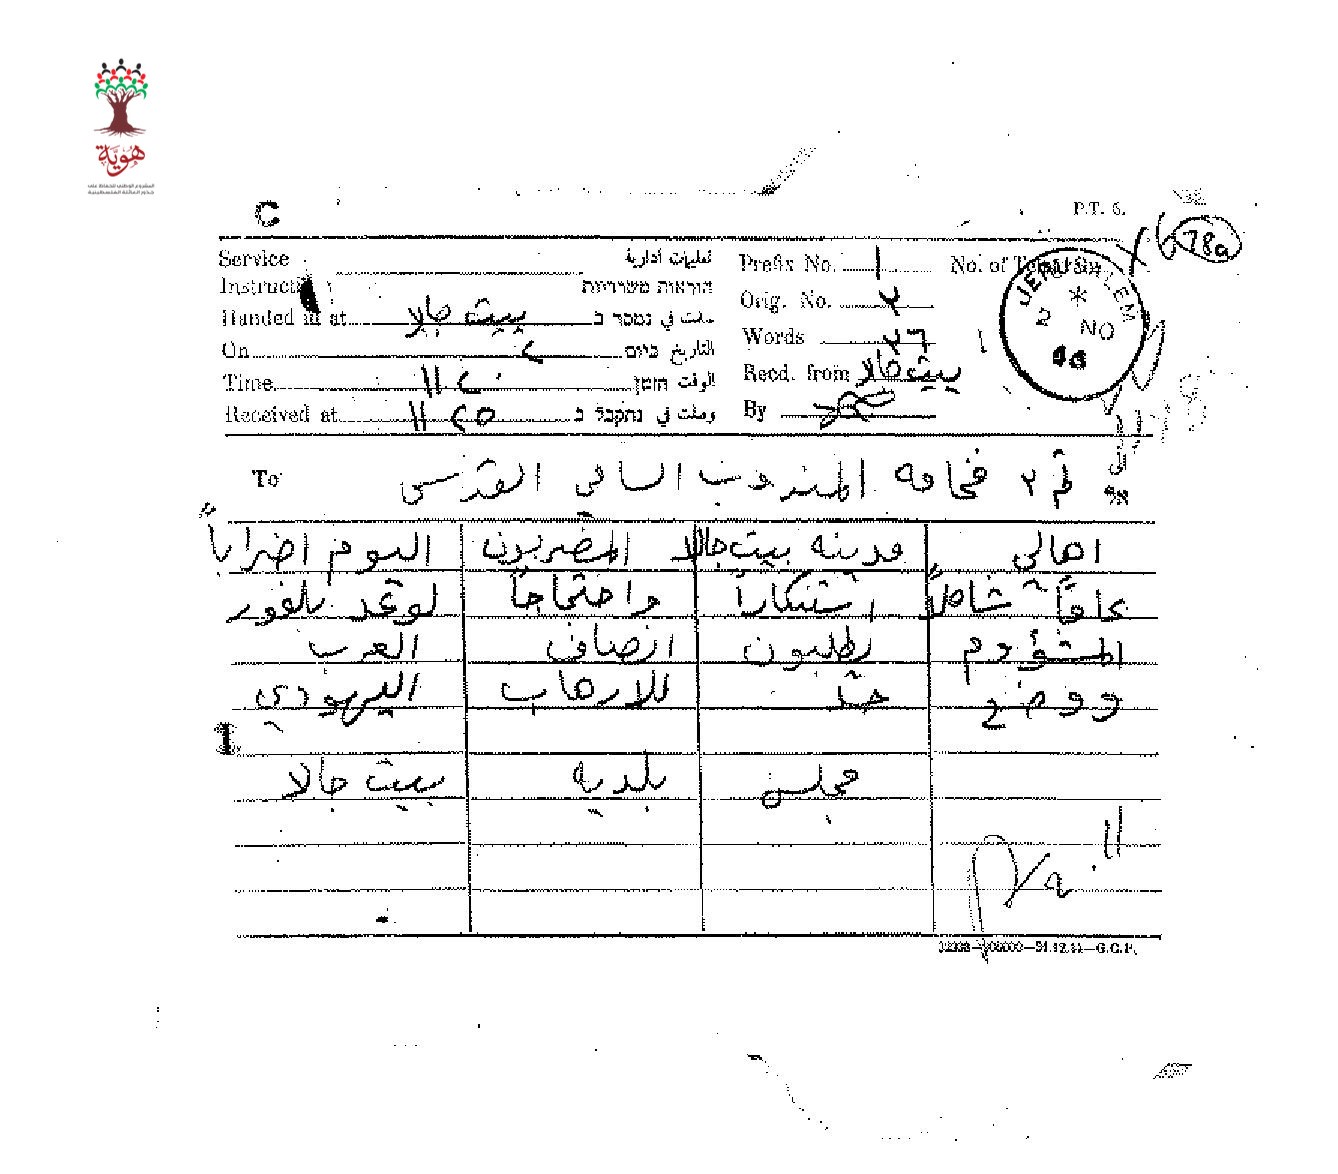 هوية
المشروع الوطني للحفاظ على
جذور العائلة الفلسطينية
C
P.T. 6.
78a
Service تعليمات ادارية
Instructi הוראות משרדיות
Handed in at بيت جالا سلمت في נמסר ב
On ٢ التاريخ ביום
Time ١١ ٢٠ الوقت הזמן
Received at ١١ ٢٥ وصلت في נתקבל ב
Prefix No. 1
Orig. No. ٢
Words ٢٦
Recd. from بيت جالا
By
No. of Telegram
JERUSALEM
2 NO
To الى אל
رقم ٢ فخامه المندوب السامي القدس
اهالي مدينه بيت جالا المضربون اليوم اضراباً
عاماً شاملاً استنكاراً واحتجاجاً لوعد بلفور
المشؤوم يطلبون انصاف العرب
ووضع حد للارهاب اليهودي
1
مجلس بلديه بيت جالا
P/a
G.C.P.